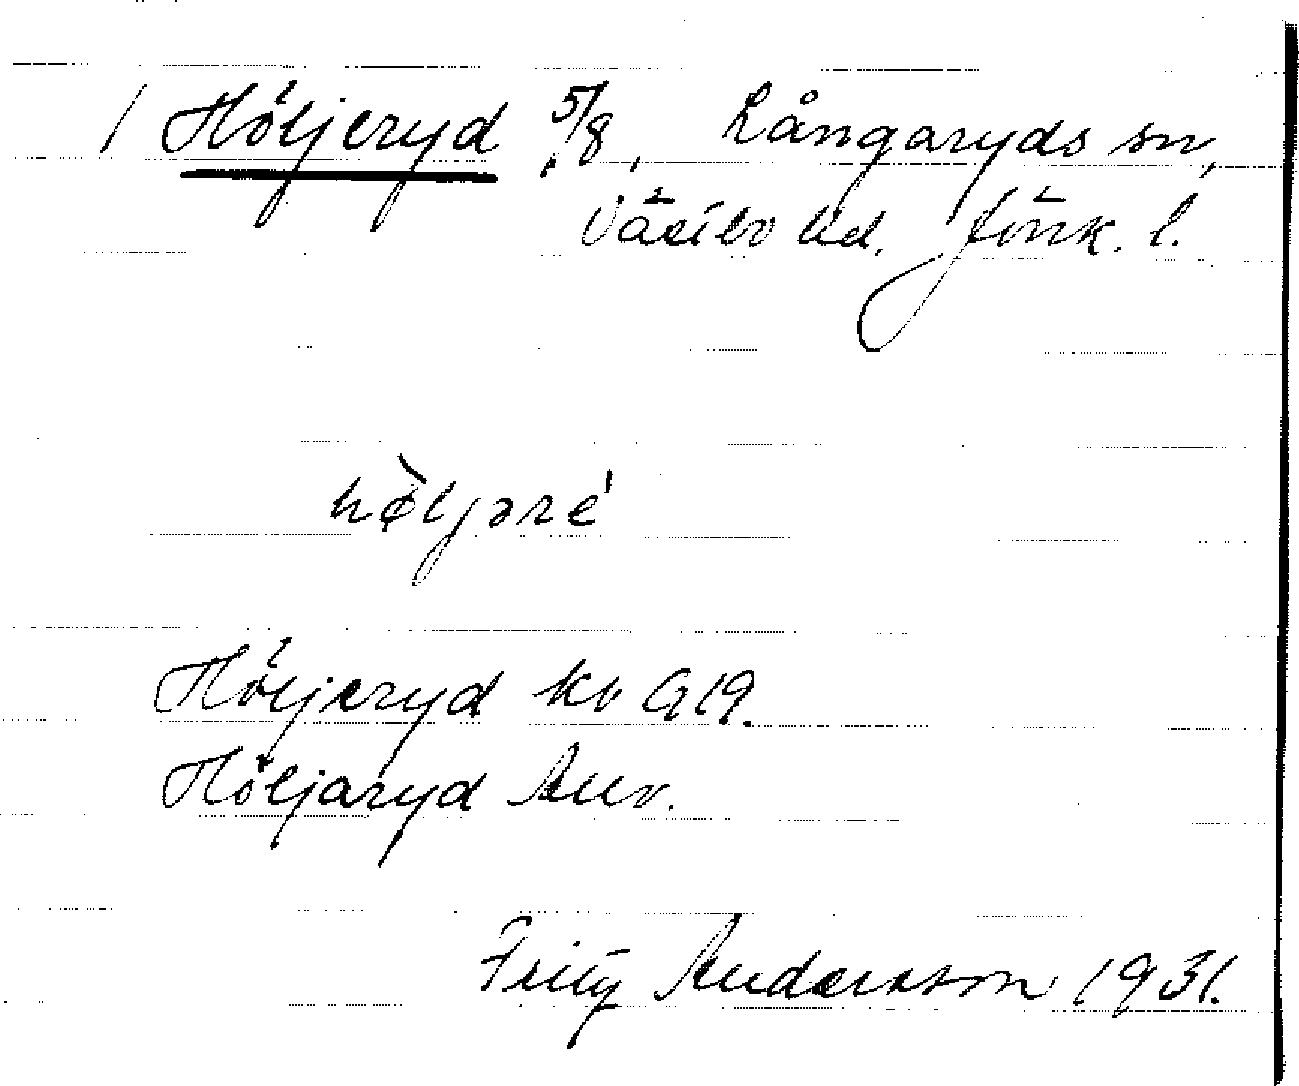 / Höljeryd 5/8, Långaryds sn,
Västbo hd. Jönk. l.
hø̀ljəré'
Höljeryd kb G 19.
Höljaryd Auv.
Fritz Andersson 1931.